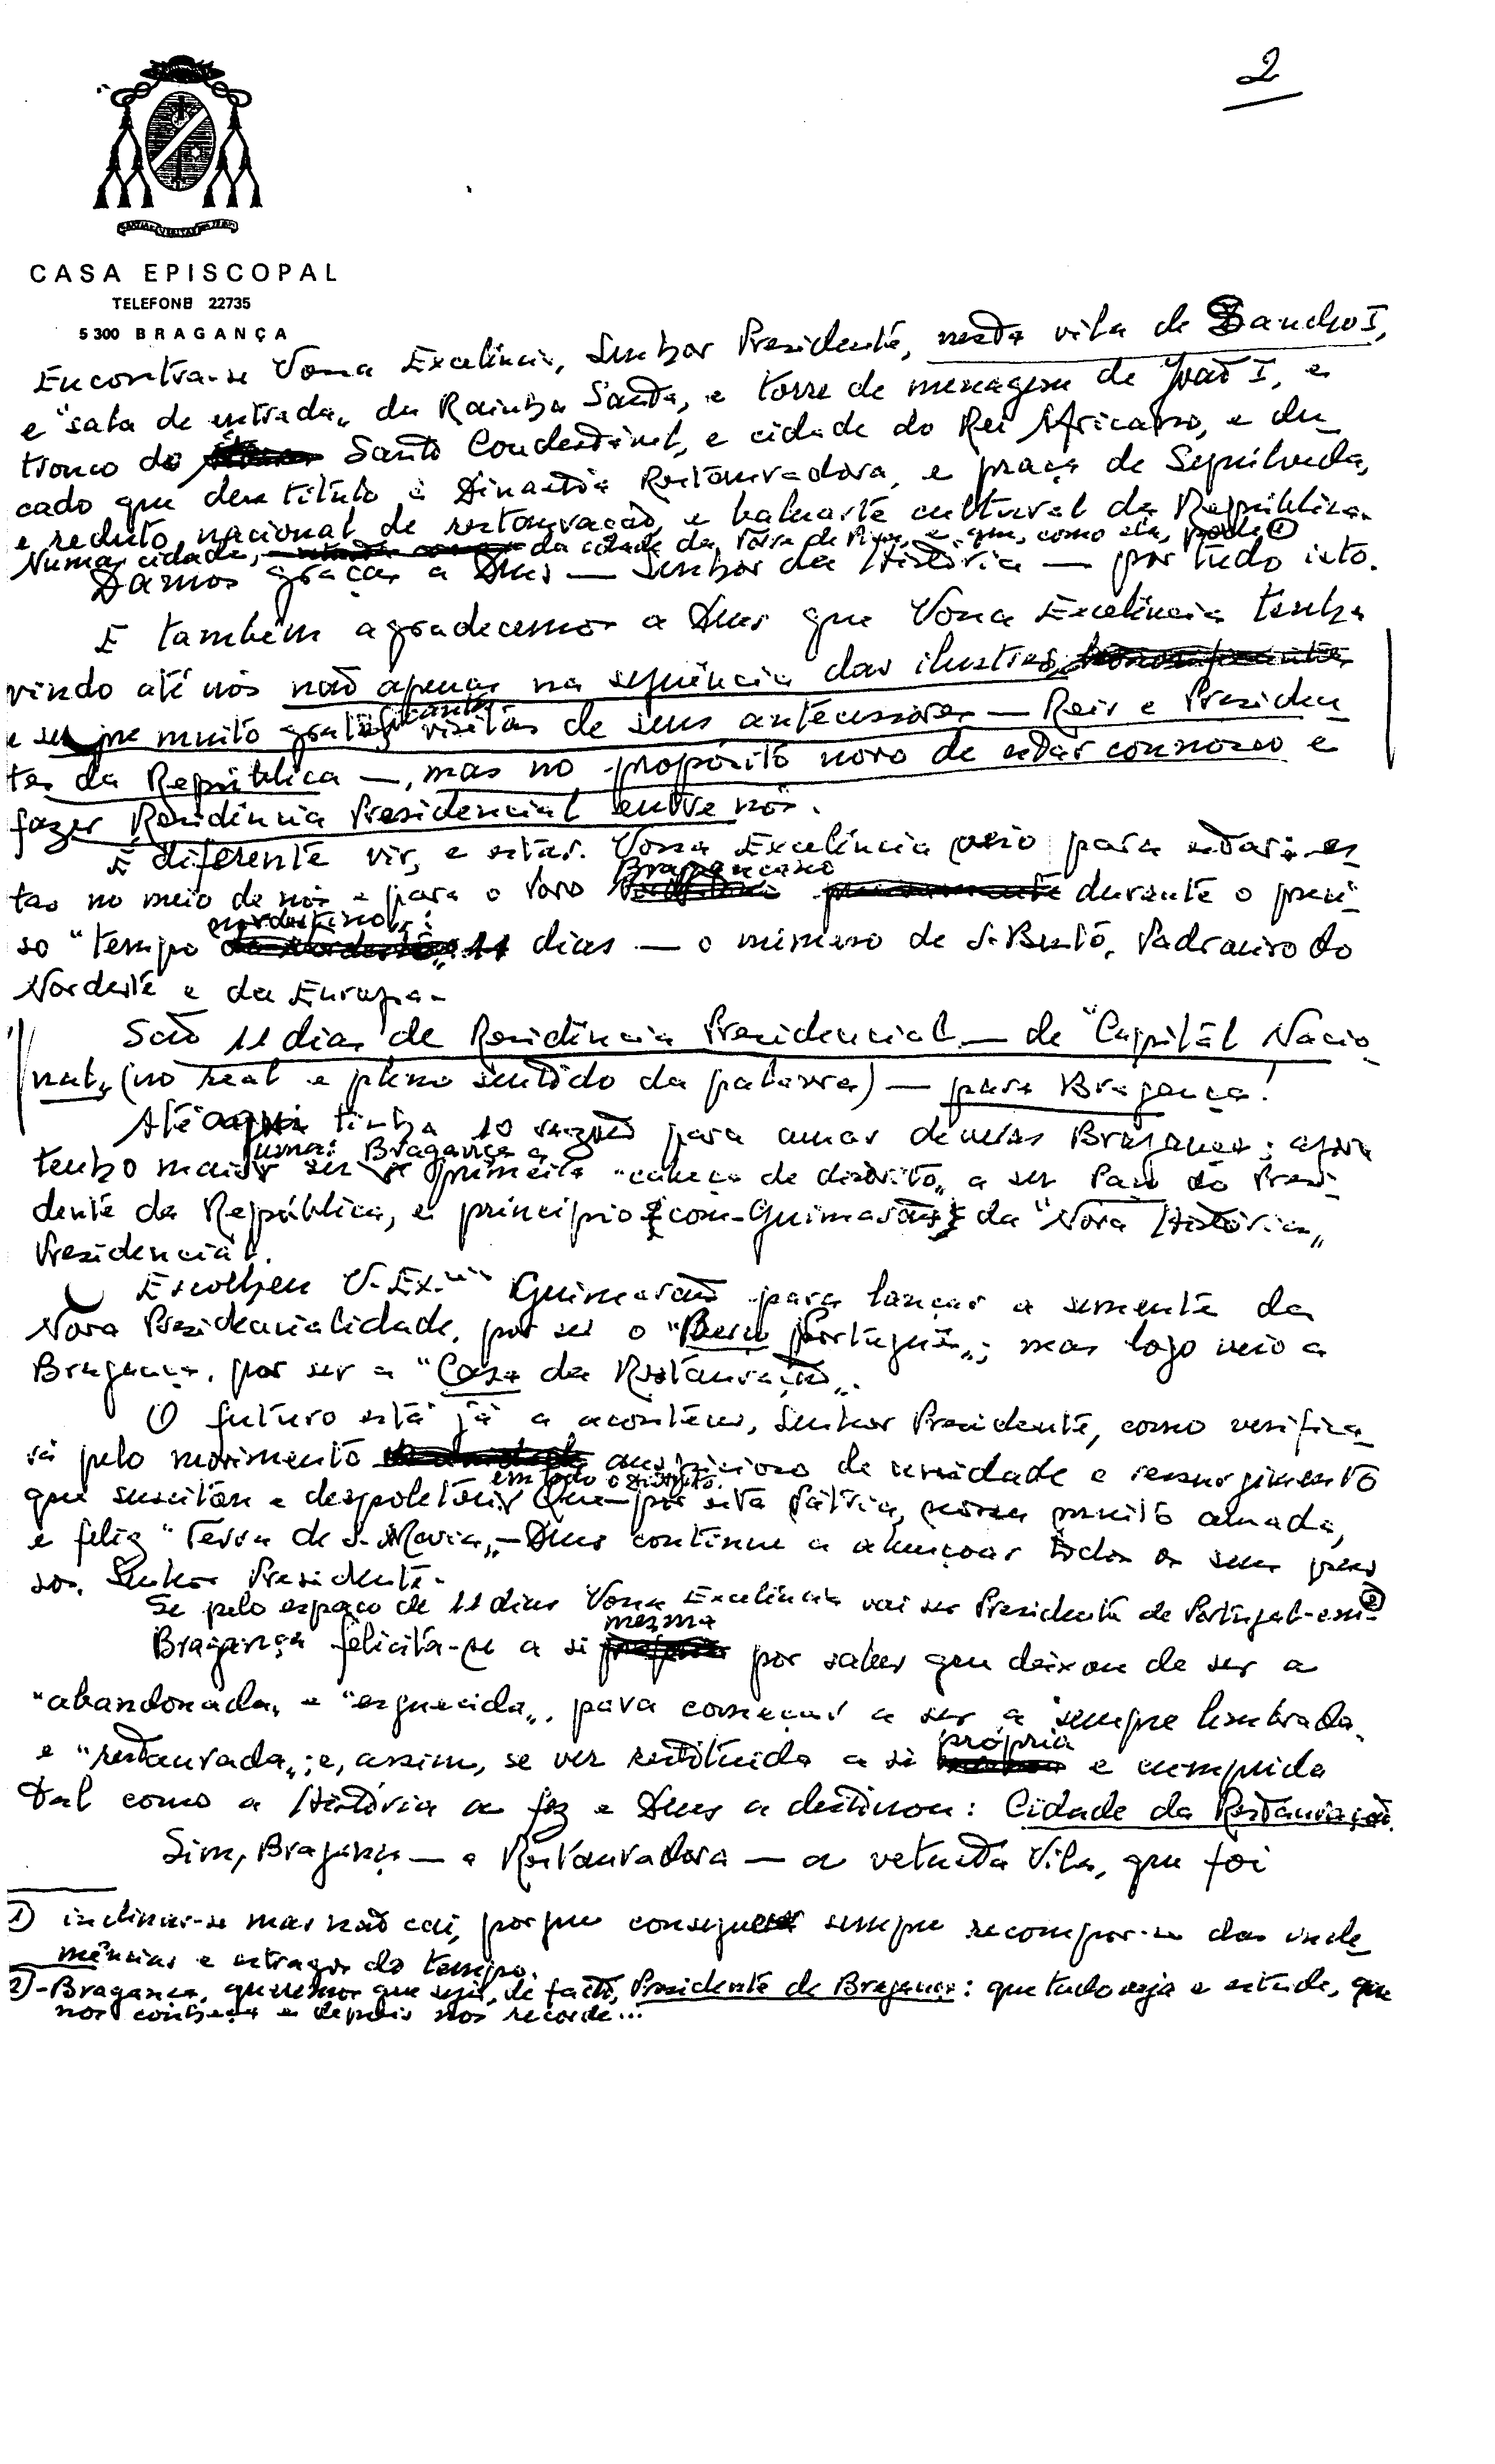 2
CASA EPISCOPAL
TELEFONE 22735
5300 BRAGANÇA
Encontra-se Vossa Excelência, Senhor Presidente, nesta vila de Sancho I,
e "sala de entrada" da Rainha Santa, e torre de menagem de João I, e
tronco do Santo Condestável, e cidade do Rei Africano, e du-
cado que deu título à Dinastia Restauradora, e praça de Sepúlveda,
e reduto nacional de restauração, e baluarte cultural da República.
Numa cidade, da cidade da Torre de Pisa, e que, como ela, pode ①
Damos graças a Deus — Senhor da História — por tudo isto.
E também agradecemos a Deus que Vossa Excelência tenha
vindo até nós não apenas na sequência das ilustres
e sempre muito gratificantes visitas de seus antecessores — Reis e Presiden-
tes da República —, mas no propósito novo de estar connosco e
fazer Residência Presidencial entre nós.
É diferente vir, e estar. Vossa Excelência veio para estar: es-
tar no meio de nós e para o Povo Bragançano durante o preci-
so "tempo nordestino": 11 dias — o número de S. Bento, Padroeiro do
Nordeste e da Europa.
São 11 dias de Residência Presidencial — de "Capital Nacio-
nal" (no real e pleno sentido da palavra) — para Bragança!
Até aqui tinha 10 razões para amar deveras Bragança; agora
tenho mais uma: ser Bragança a primeira "cabeça de distrito" a ser Paço do Presi-
dente da República, e princípio {com Guimarães} da "Nova História"
Presidencial.
Escolheu V. Ex.cia Guimarães para lançar a semente da
Nova Presidencialidade, por ser o "Berço Português"; mas logo veio a
Bragança, por ser a "Casa da Restauração".
O futuro está já a acontecer, Senhor Presidente, como verifica-
rá pelo movimento auspicioso de unidade e ressurgimento
que suscitou e despoletou em todo o distrito. Que — por esta Pátria, nossa muito amada,
e feliz "Terra de S. Maria" — Deus continue a abençoar todos os seus pas-
sos, Senhor Presidente.
Se pelo espaço de 11 dias Vossa Excelência vai ser Presidente de Portugal-em- ②
Bragança felicita-se a si mesma por saber que deixou de ser a
"abandonada" e "esquecida", para começar a ser a sempre lembrada
e "restaurada"; e, assim, se ver restituída a si própria e cumprida
tal como a História a fez e Deus a destinou: Cidade da Restauração.
Sim, Bragança — a Restauradora — a vetusta Vila, que foi
1) inclinar-se mas não cai, porque consegue sempre recompor-se das incle-
mências e estragos do tempo.
2) -Bragança, queremos que seja, de facto, Presidente de Bragança: que tudo veja e estude, que
nos conheça e depois nos recorde...